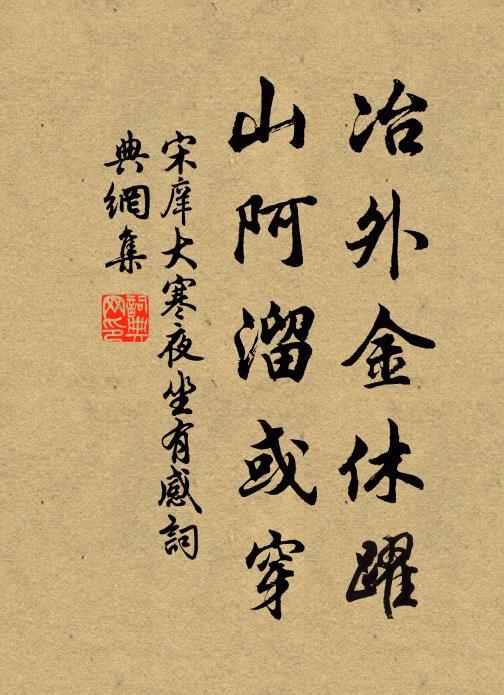 冶外金休躍
山阿溜或穿
宋庠大寒夜坐有感詞
典網集
詞典網印